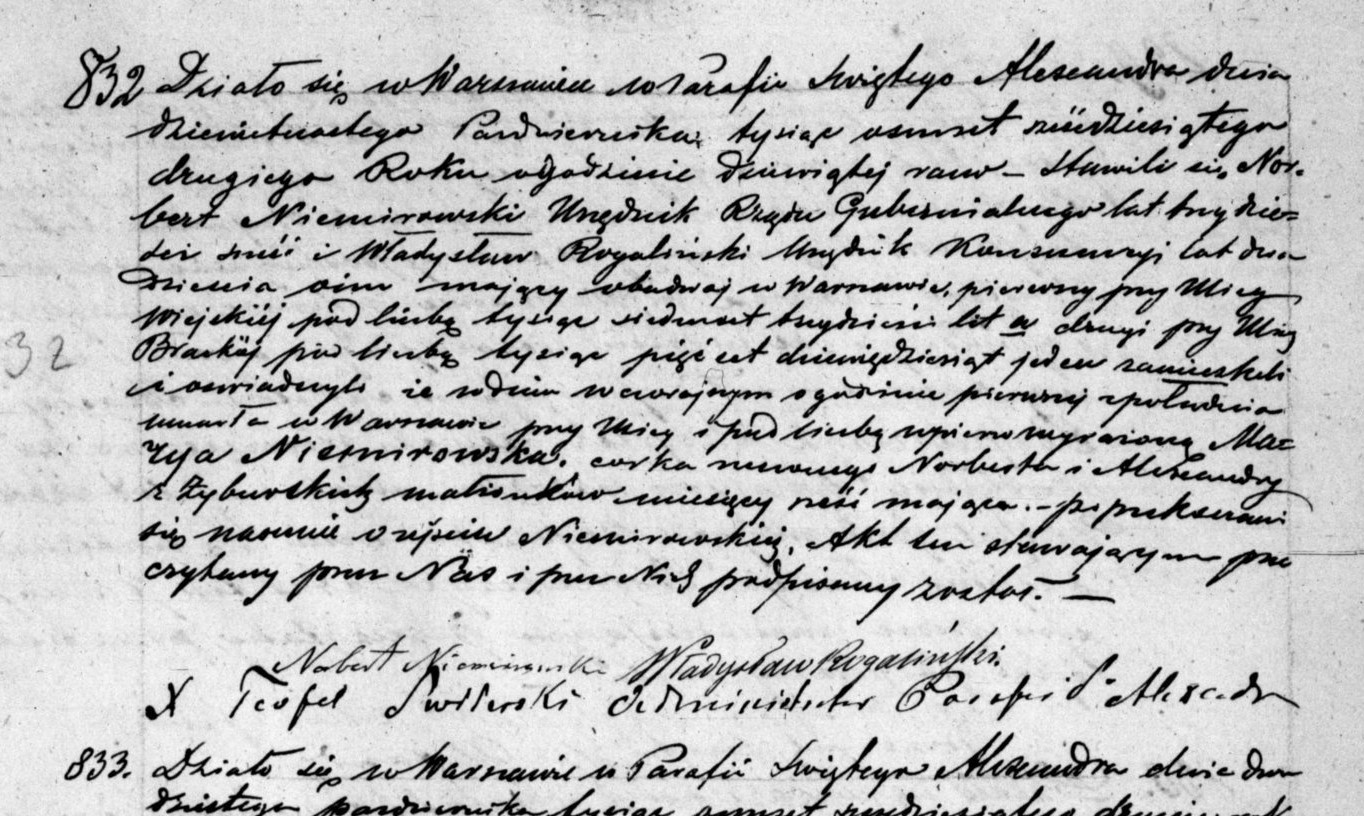 832 Działo się w Warszawie w Parafii Świętego Alexandra dnia
dziewiętnastego Października tysiąc ośmset sześćdziesiątego
drugiego Roku o godzinie dziewiątej rano – Stawili się, Nor-
bert Niemirowski Urzędnik Rządu Gubernialnego lat trzydzie-
ści sześć i Władysław Rogaliński Urzędnik Konsumcyi lat dwa
dzieścia ośm mający obadwaj w Warszawie, pierwszy przy Ulicy
Wiejskiéj pod liczbą tysiąc siedmset trzydzieści lit a drugi przy Ulicy
Brackiéj pod liczbą tysiąc pięćset dziewięćdziesiąt jeden zamieszkali
i oświadczyli że w dniu wczorajszym o godzinie pierwszej z południa
umarła w Warszawie przy Ulicy i pod liczbą wpierw wyrażoną Ma-
rya Niemirowska. córka Norberta i Alexandry
z Żyburskich małżonków miesięcy sześć mająca. – po przekonaniu
się naocznie o zejściu Niemirowskiéj, Akt ten stawającym prze
czytany przez Nas i przez Nich podpisany został. —
Norbert Niemirowski Władysław Rogaliński
X Teofil Administrator Parafii Sº Alexandra
833. Działo się w Warszawie w Parafii Świętego Alexandra dnia dwu
dziestego października tysiąc ośmset sześćdziesiątego drugiego
32